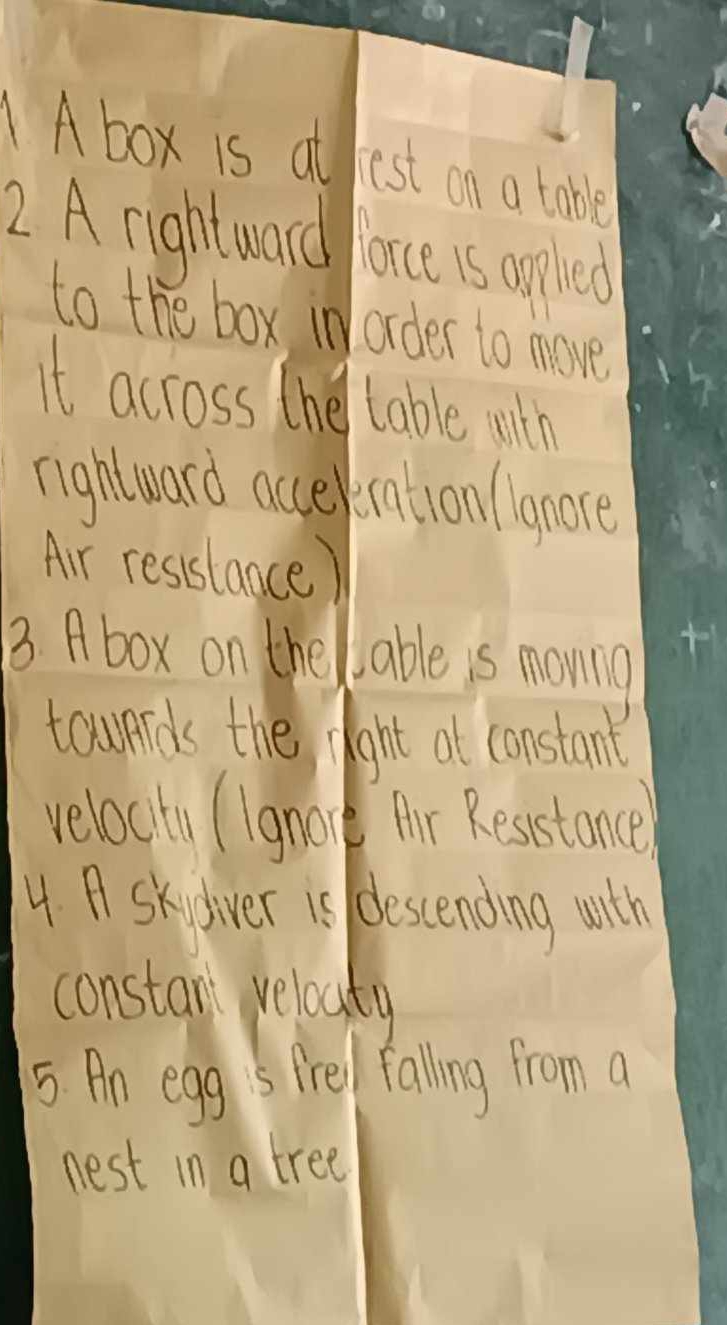 1. A box is at rest on a table
2. A rightward force is applied
to the box in order to move
it across the table with
rightward acceleration (Ignore
Air resistance)
3. A box on the table is moving
towards the right at constant
velocity (Ignore Air Resistance)
4. A skydiver is descending with
constant velocity
5. An egg is free falling from a
nest in a tree